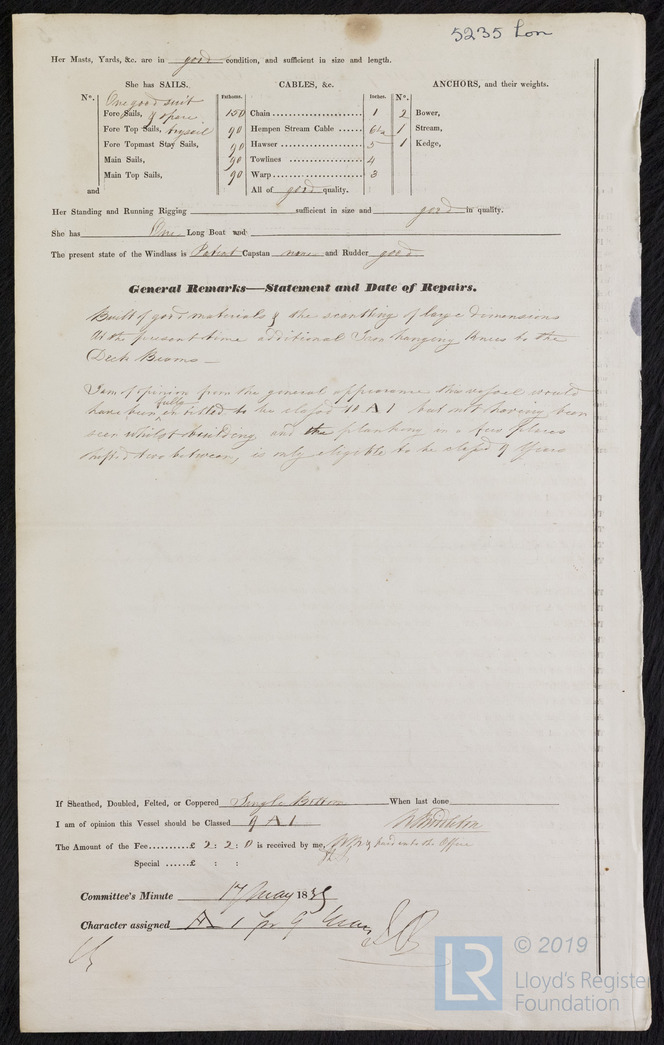 5235 Lon
Her Masts, Yards, &c. are in good condition, and sufficient in size and length.
She has SAILS.
CABLES, &c.
ANCHORS, and their weights.
N°.
Fathoms.
Inches.
N°.
One good suit
Fore Sails, & spare
150 Chain 1
2 Bower,
Fore Top Sails, trysail
90 Hempen Stream Cable 6½
1 Stream,
Fore Topmast Stay Sails,
90 Hawser 5
1 Kedge,
Main Sails,
90 Towlines 4
Main Top Sails,
90 Warp 3
and
All of good quality.
Her Standing and Running Rigging sufficient in size and good in quality.
She has One Long Boat and
The present state of the Windlass is Patent Capstan none and Rudder good
General Remarks—Statement and Date of Repairs.
Built of good materials & the scantling of large dimensions
At the present time additional Iron hanging Knees to the
Deck Beams —
I am of opinion from the general appearance this vessel would
have been fully entitled to be classed A 1 but not having been
seen whilst building and the planking in a few places
shifted two between, is only eligible to be classed 9 Years
If Sheathed, Doubled, Felted, or Coppered Single Bottom When last done
I am of opinion this Vessel should be Classed 9 A 1
The Amount of the Fee £ 2 : 2 : 0 is received by me,
Special £ : :
Committee's Minute 17 May 18
Character assigned A 1 for 9 Years
LR
© 2019
Lloyd's Register
Foundation